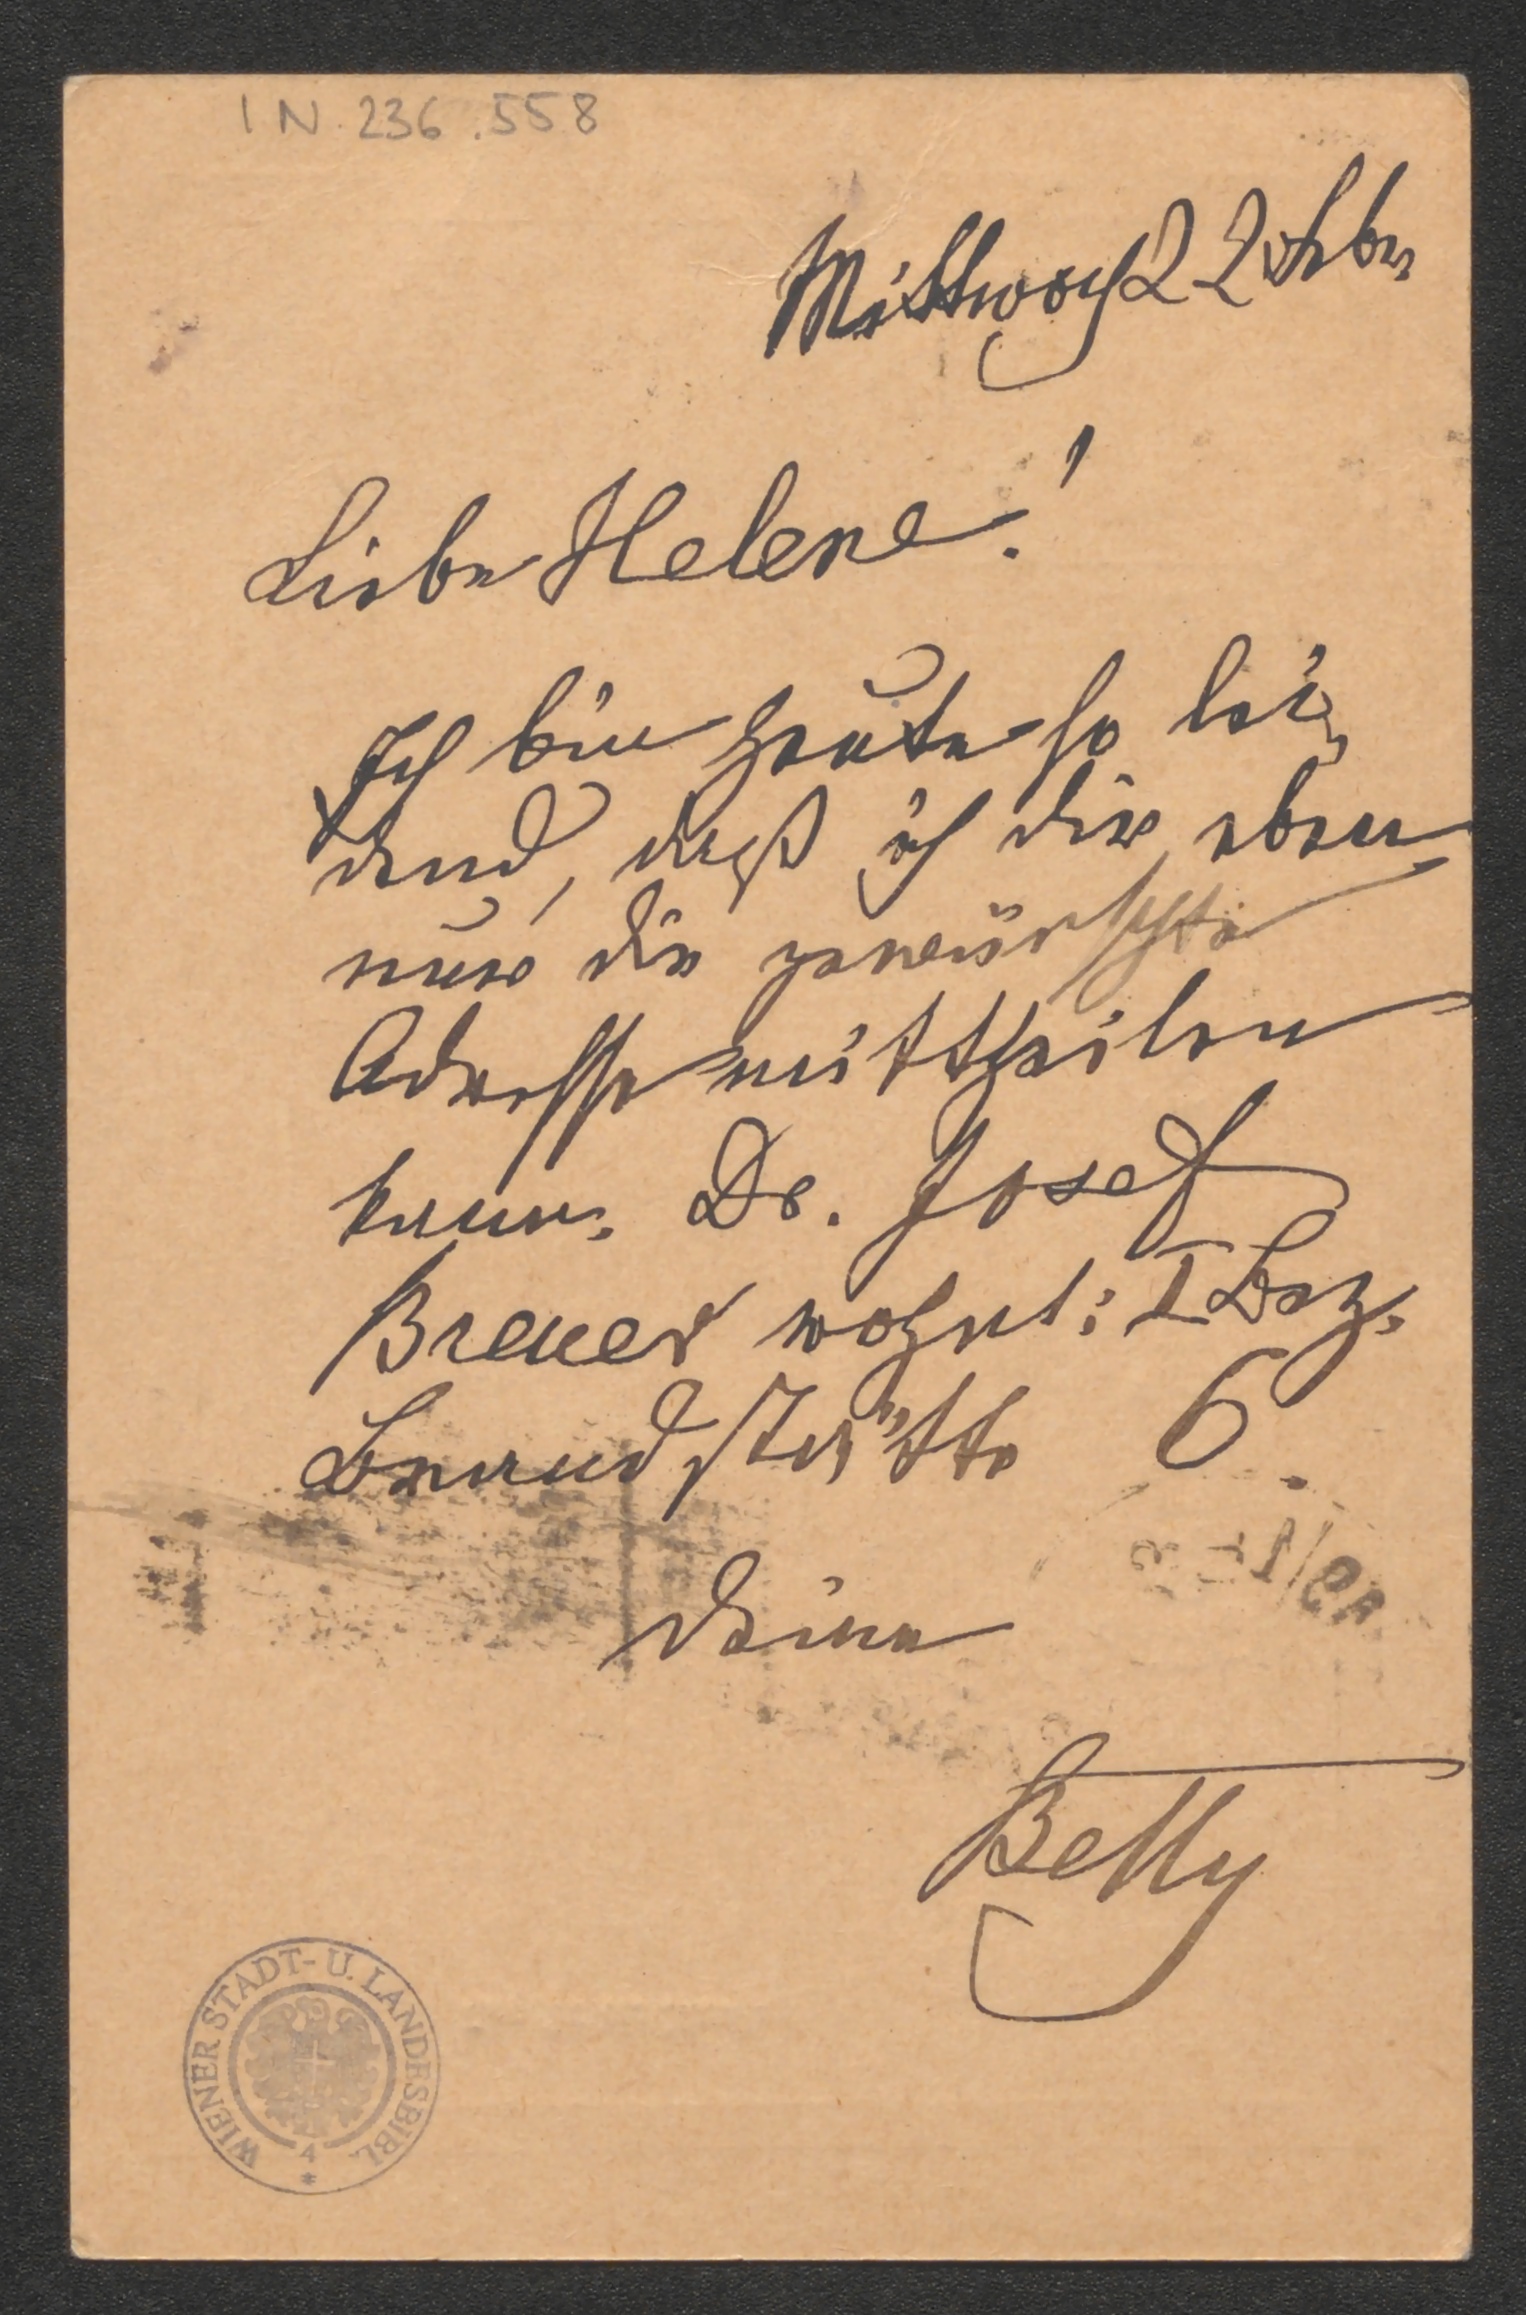 IN 236.558
Mittwoch 22 Feber
Liebe Helene!
Ich bin heute so lei-
dend, daß ich dir eben
nur die gewünschte
Adresse mittheilen
kann. Dr. Josef
Breuer wohnt: I Bez.
Brandstätte 6.
Deine
Betty
WIENER STADT- U. LANDESBIBL.
4